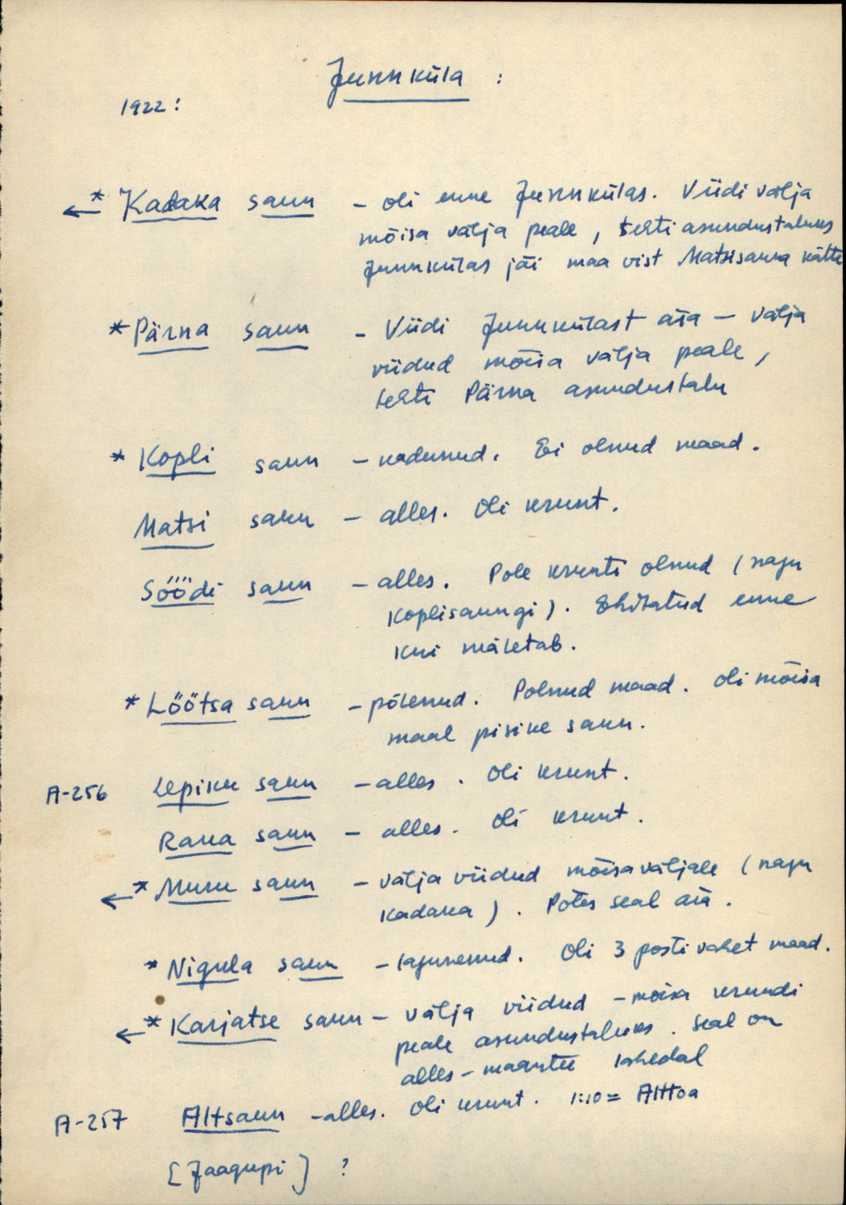 Junnküla :
1922 :
← * Kadaka saun – oli enne Junnkülas. Viidi välja
mõisa välja peale, tehti asundustaluks
Junnkülas jäi maa vist Matsisauna kätte
* Pärna saun – Viidi Junnkülast ära – välja
viidud mõisa välja peale,
tehti Pärna asundustalu
* Kopli saun – kadunud. Ei olnud maad.
Matsi saun – alles. Oli krunt.
Söödi saun – alles. Pole krunti olnud (nagu
Koplisaungi). Ehitatud enne
kui mäletab.
* Lõõtsa saun – põlenud. Polnud maad. Oli mõisa
maal pisike saun.
A-256 Lepiku saun – alles. Oli krunt.
Raua saun – alles. Oli krunt.
← * Muru saun – välja viidud mõisaväljale (nagu
Kadaka). Põles seal ära.
* Nigula saun – lagunenud. Oli 3 posti vahet maad.
← * Karjatse saun – välja viidud – mõisa krundi
peale asundustaluks. Seal on
alles – maantee lähedal
A-257 Altsaun – alles. Oli krunt. 1:10 = Alttoa
[Jaagupi] ?